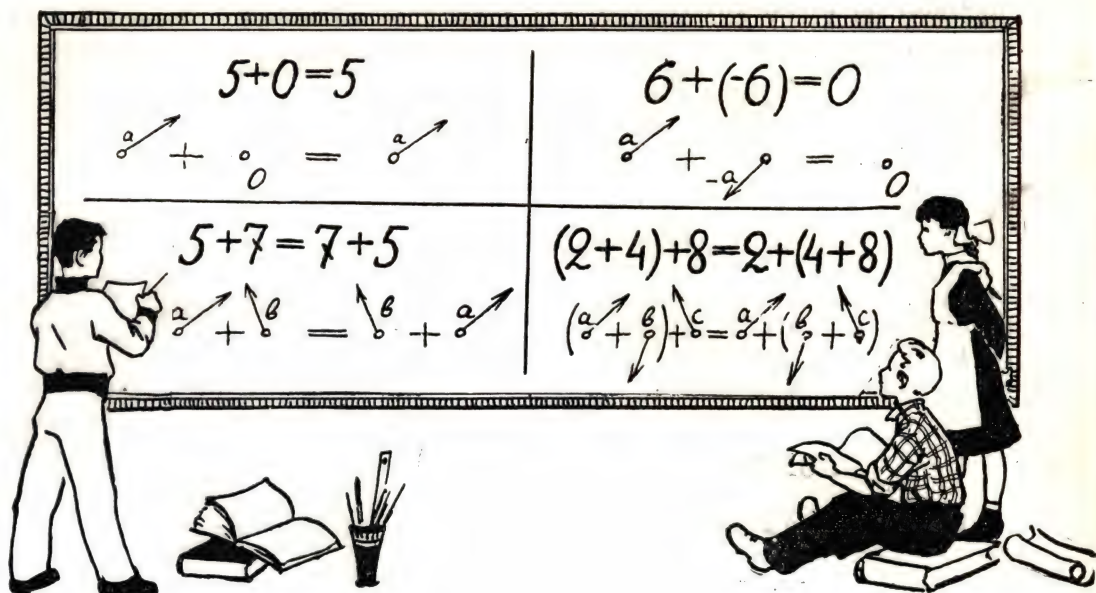 5+0=5
a + 0 = a
6+(-6)=0
a + -a = 0
5+7=7+5
a + в = в + a
(2+4)+8=2+(4+8)
(a + в)+c=a+(в + c)